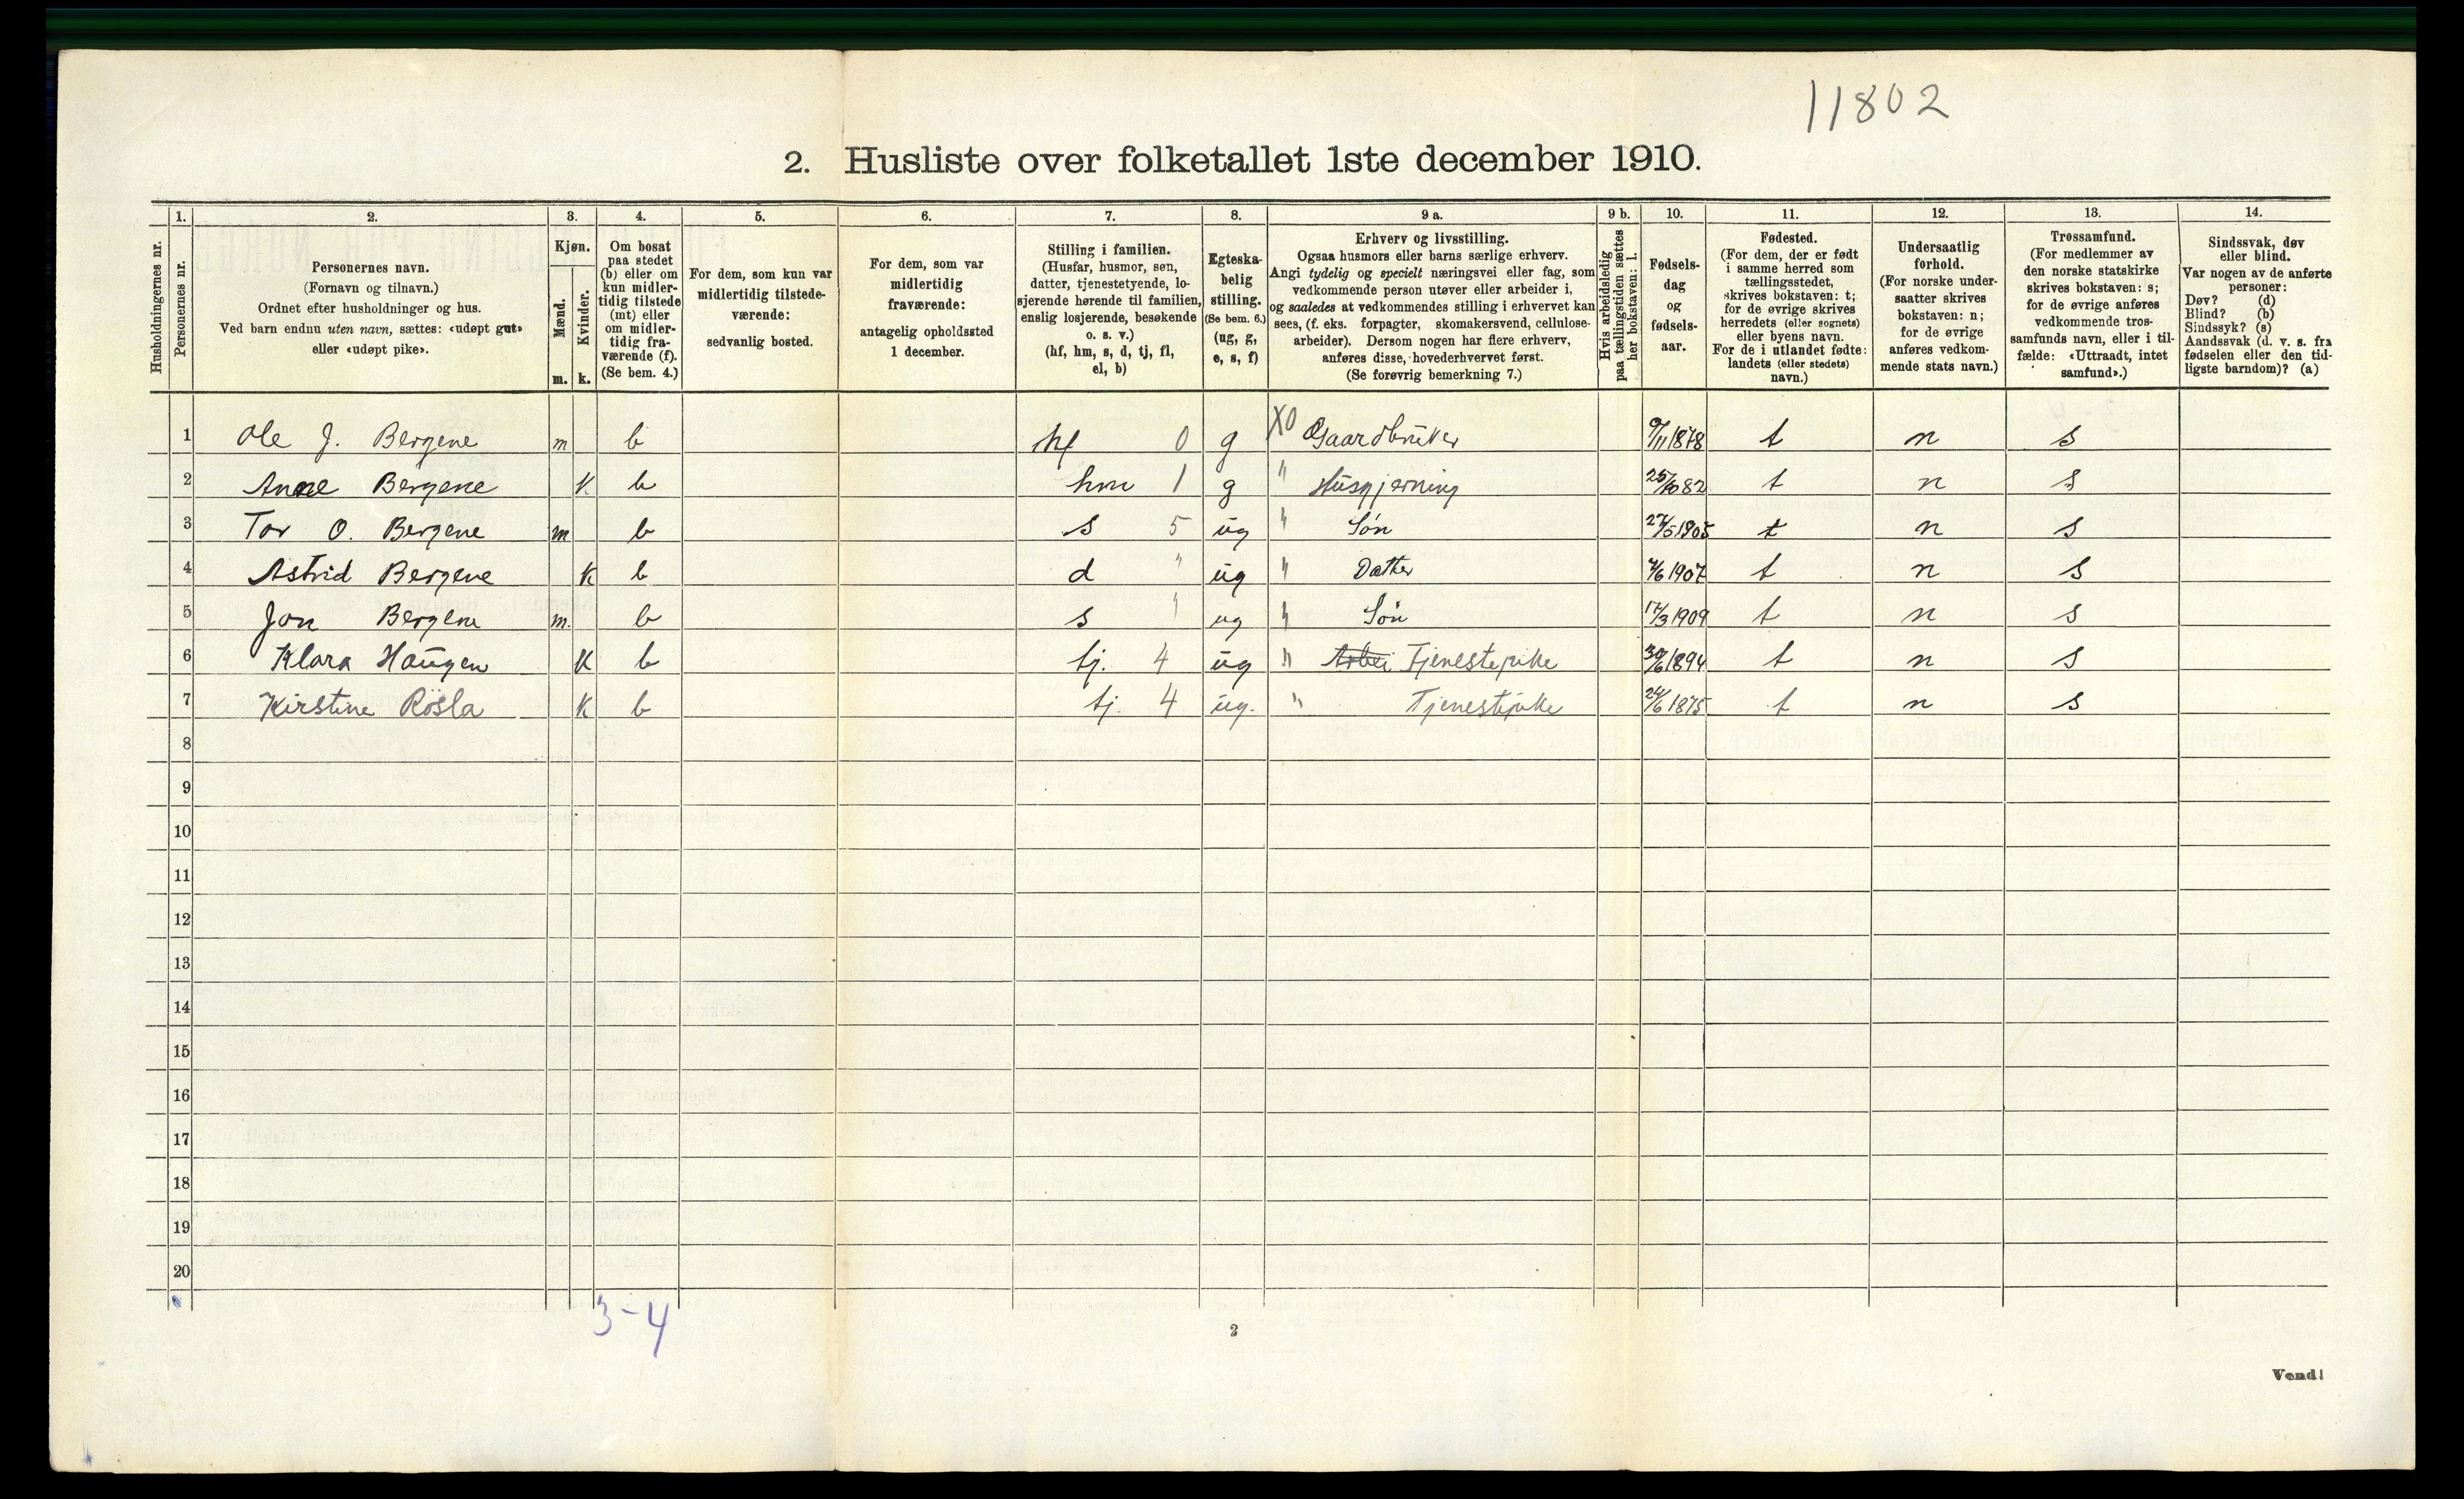 11802
2. Husliste over folketallet 1ste december 1910.
Husholdningernes nr.
1.
Personernes nr.
2.
Personernes navn.
(Fornavn og tilnavn.)
Ordnet efter husholdninger og hus.
Ved barn endnu uten navn, sættes: «udøpt gut»
eller «udøpt pike».
3.
Kjøn.
Mænd.
m.
Kvinder.
k.
4.
Om bosat
paa stedet
(b) eller om
kun midler-
tidig tilstede
(mt) eller
om midler-
tidig fra-
værende (f).
(Se bem. 4.)
5.
For dem, som kun var
midlertidig tilstede-
værende:
sedvanlig bosted.
6.
For dem, som var
midlertidig
fraværende:
antagelig opholdssted
1 december.
7.
Stilling i familien.
(Husfar, husmor, søn,
datter, tjenestetyende, lo-
sjerende hørende til familien,
enslig losjerende, besøkende
o. s. v.)
(hf, hm, s, d, tj, fl,
el, b)
8.
Egteska-
belig
stilling.
(Se bem. 6.)
(ug, g,
e, s, f)
9 a.
Erhverv og livsstilling.
Ogsaa husmors eller barns særlige erhverv.
Angi tydelig og specielt næringsvei eller fag, som
vedkommende person utøver eller arbeider i,
og saaledes at vedkommendes stilling i erhvervet kan
sees, (f. eks. forpagter, skomakersvend, cellulose-
arbeider). Dersom nogen har flere erhverv,
anføres disse, hovederhvervet først.
(Se forøvrig bemerkning 7.)
9 b.
Hvis arbeidsledig
paa tællingstiden sættes
her bokstaven: l.
10.
Fødsels-
dag
og
fødsels-
aar.
11.
Fødested.
(For dem, der er født
i samme herred som
tællingsstedet,
skrives bokstaven: t;
for de øvrige skrives
herredets (eller sognets)
eller byens navn.
For de i utlandet fødte:
landets (eller stedets)
navn.)
12.
Undersaatlig
forhold.
(For norske under-
saatter skrives
bokstaven: n;
for de øvrige
anføres vedkom-
mende stats navn.)
13.
Trossamfund.
(For medlemmer av
den norske statskirke
skrives bokstaven: s;
for de øvrige anføres
vedkommende tros-
samfunds navn, eller i til-
fælde: «Uttraadt, intet
samfund».)
14.
Sindssvak, døv
eller blind.
Var nogen av de anførte
personer:
Døv? (d)
Blind? (b)
Sindssyk? (s)
Aandssvak (d. v. s. fra
fødselen eller den tid-
ligste barndom)? (a)
1 Ole J. Bergene m b hf 0 g X0 Gaardbruker 9/11 1878 t n s
2 Anne Bergene K b hm 1 g " Husgjerning 25/10 82 t n s
3 Tor O. Bergene m b s 5 ug " Søn 27/5 1905 t n s
4 Astrid Bergene K b d " ug " Datter /6 1907 t n s
5 Jon Bergene m. b s " ug " Søn 17/3 1909 t n s
6 Klara Haugen K b tj. 4 ug " Arbei Tjenestepike 30/6 1894 t n s
7 Kirstine Røsla K b tj. 4 ug. " Tjenestepike 24/6 1875 t n s
8
9
10
11
12
13
14
15
16
17
18
19
20
3-4
2
Vend!